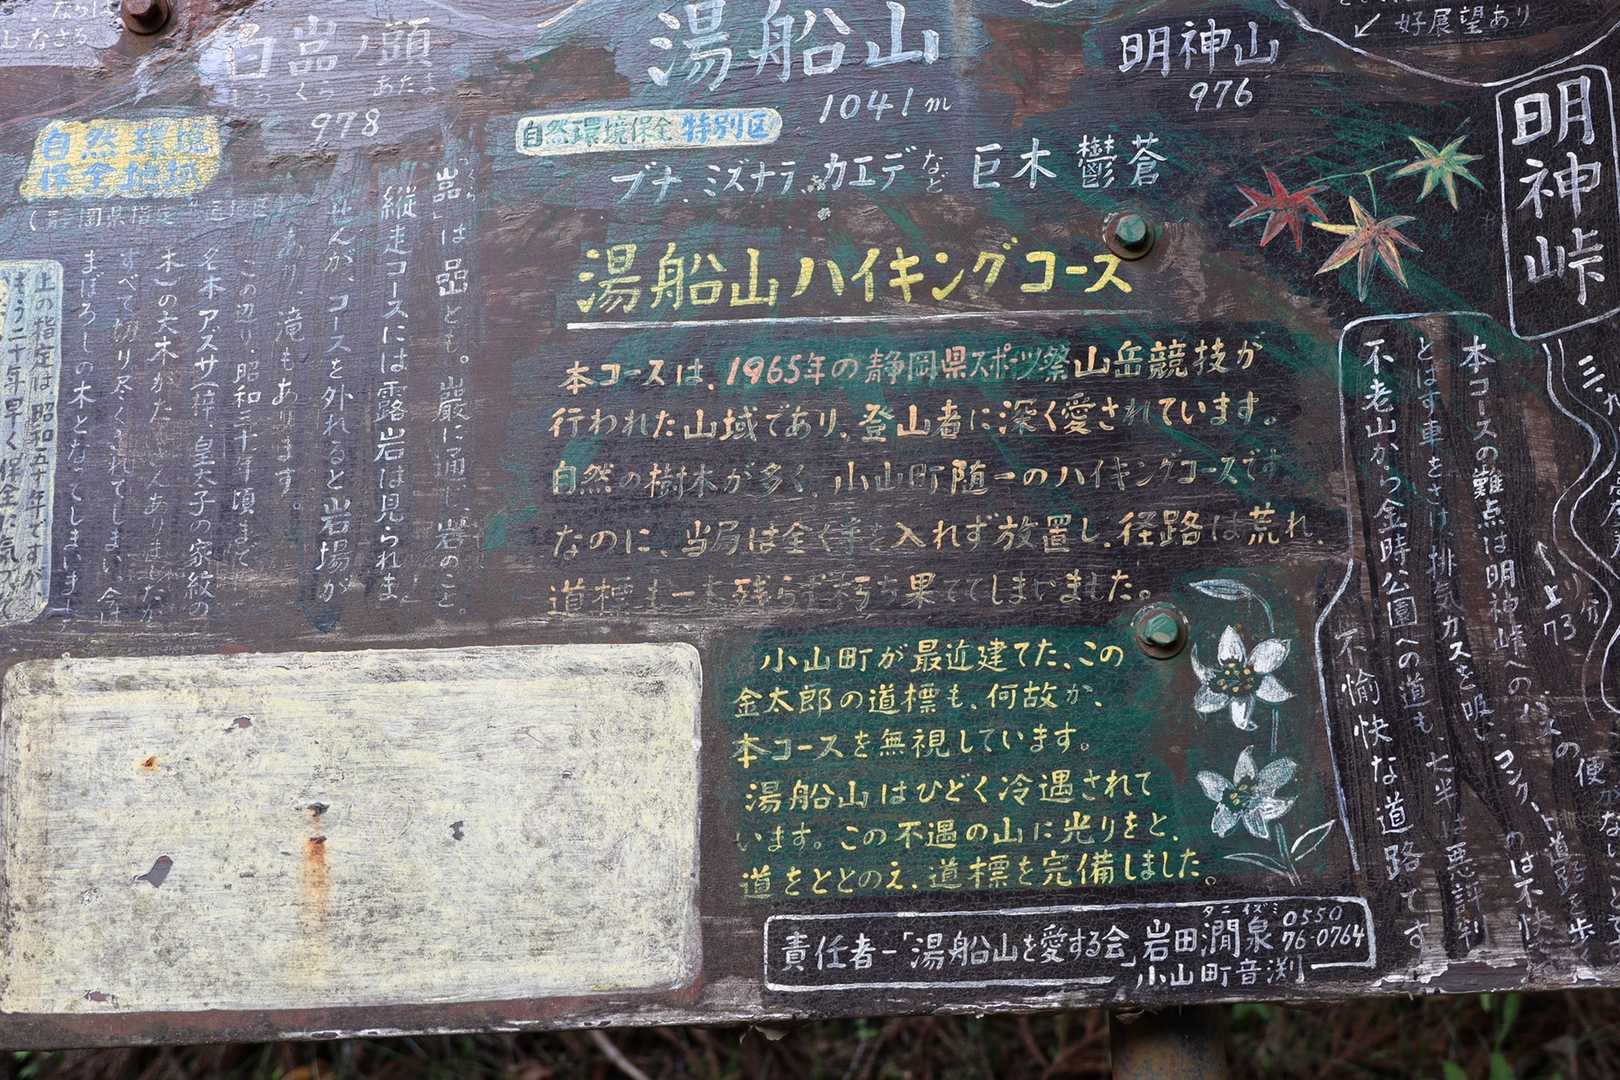 白嵓ノ頭
しらくらのあたま
978
湯船山
1041m
明神山
976
好展望あり
自然環境
保全地域
自然環境保全 特別区
ブナ ミズナラ カエデ など 巨木 鬱蒼
明神峠
湯船山ハイキングコース
本コースは、1965年の静岡県スポーツ祭山岳競技が
行われた山域であり、登山者に深く愛されています。
自然の樹木が多く、小山町随一のハイキングコースです
なのに、当局は全く手を入れず放置し、径路は荒れ、
道標も一本残らず朽ち果ててしまいました。
小山町が最近建てた、この
金太郎の道標も、何故か、
本コースを無視しています。
湯船山はひどく冷遇されて
います。この不遇の山に光りをと、
道をととのえ、道標を完備しました。
責任者-「湯船山を愛する会」岩田澗泉 タニイズミ 0550
76-0764
小山町音渕
「嵓」は嵒とも。巌に通じ、岩のこと。
縦走コースには露岩は見られま
せんが、コースを外れると岩場が
あり、滝もあります。
この辺り、昭和三十年頃まで
名木アズサ(梓、皇太子の家紋の
木)の大木がたくさんありましたが
すべて切り尽くされてしまい、今は
まぼろしの木となってしまいます
上の指定は昭和五十年ですが、
もう二十年早く保全に気づ
本コースの難点は明神峠へのバスの便がない
とばす車をさけ、排気ガスを吸い、コンクリート道路を歩
不老山から金時公園への道も、七半は悪評判
不愉快な道路です
↑上73分